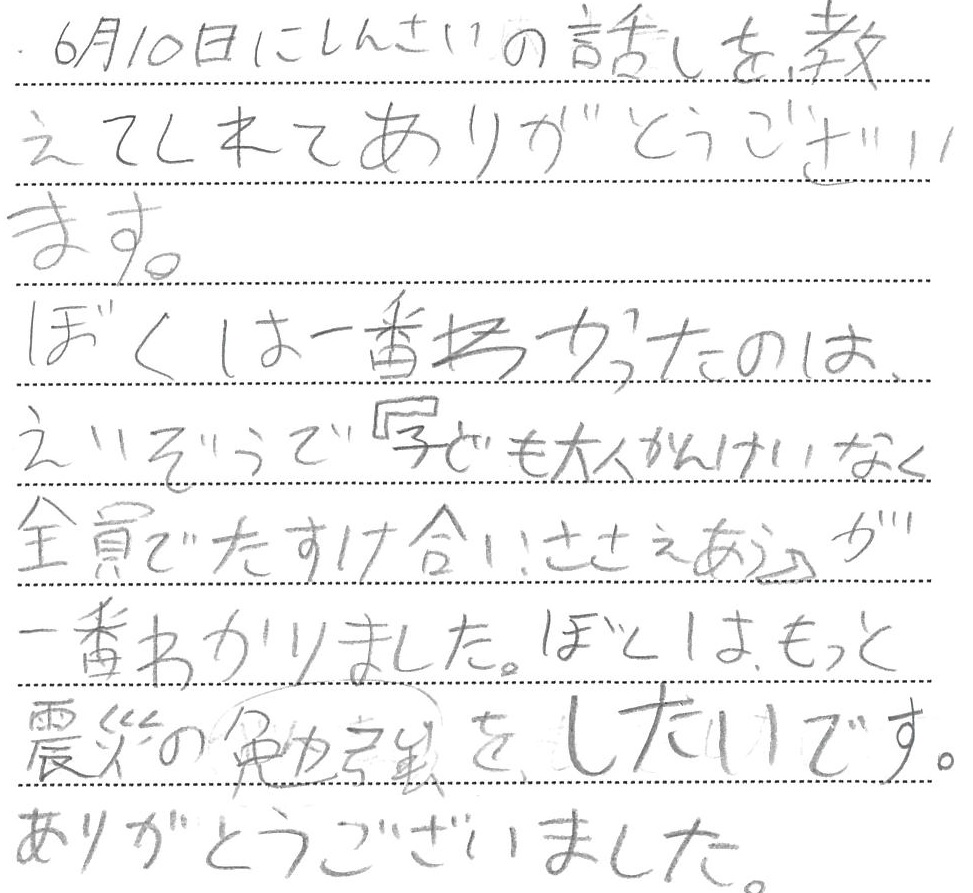 6月10日にしんさいの話しを、教
えてくれてありがとうござい
ます。
ぼくは一番わかったのは、
えいぞうで『子ども大人かんけいなく
全員でたすけ合い、ささえあう』が
一番わかりました。ぼくは、もっと
震災の勉強を、したいです。
ありがとうございました。